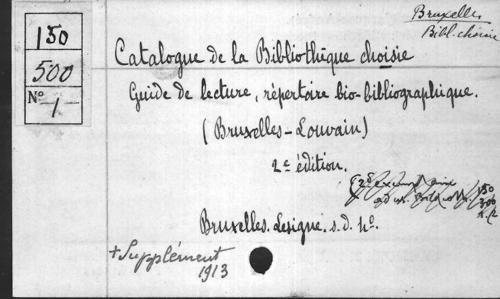 Bruxelles.
Bibl. choisie
150
500
N° 1
Catalogue de la Bibliothèque choisie
Guide de lecture, répertoire bio-bibliographique.
(Bruxelles-Louvain)
2e édition.
150
Bruxelles. Lesigne. s. d. h°.
+ Supplément
1913